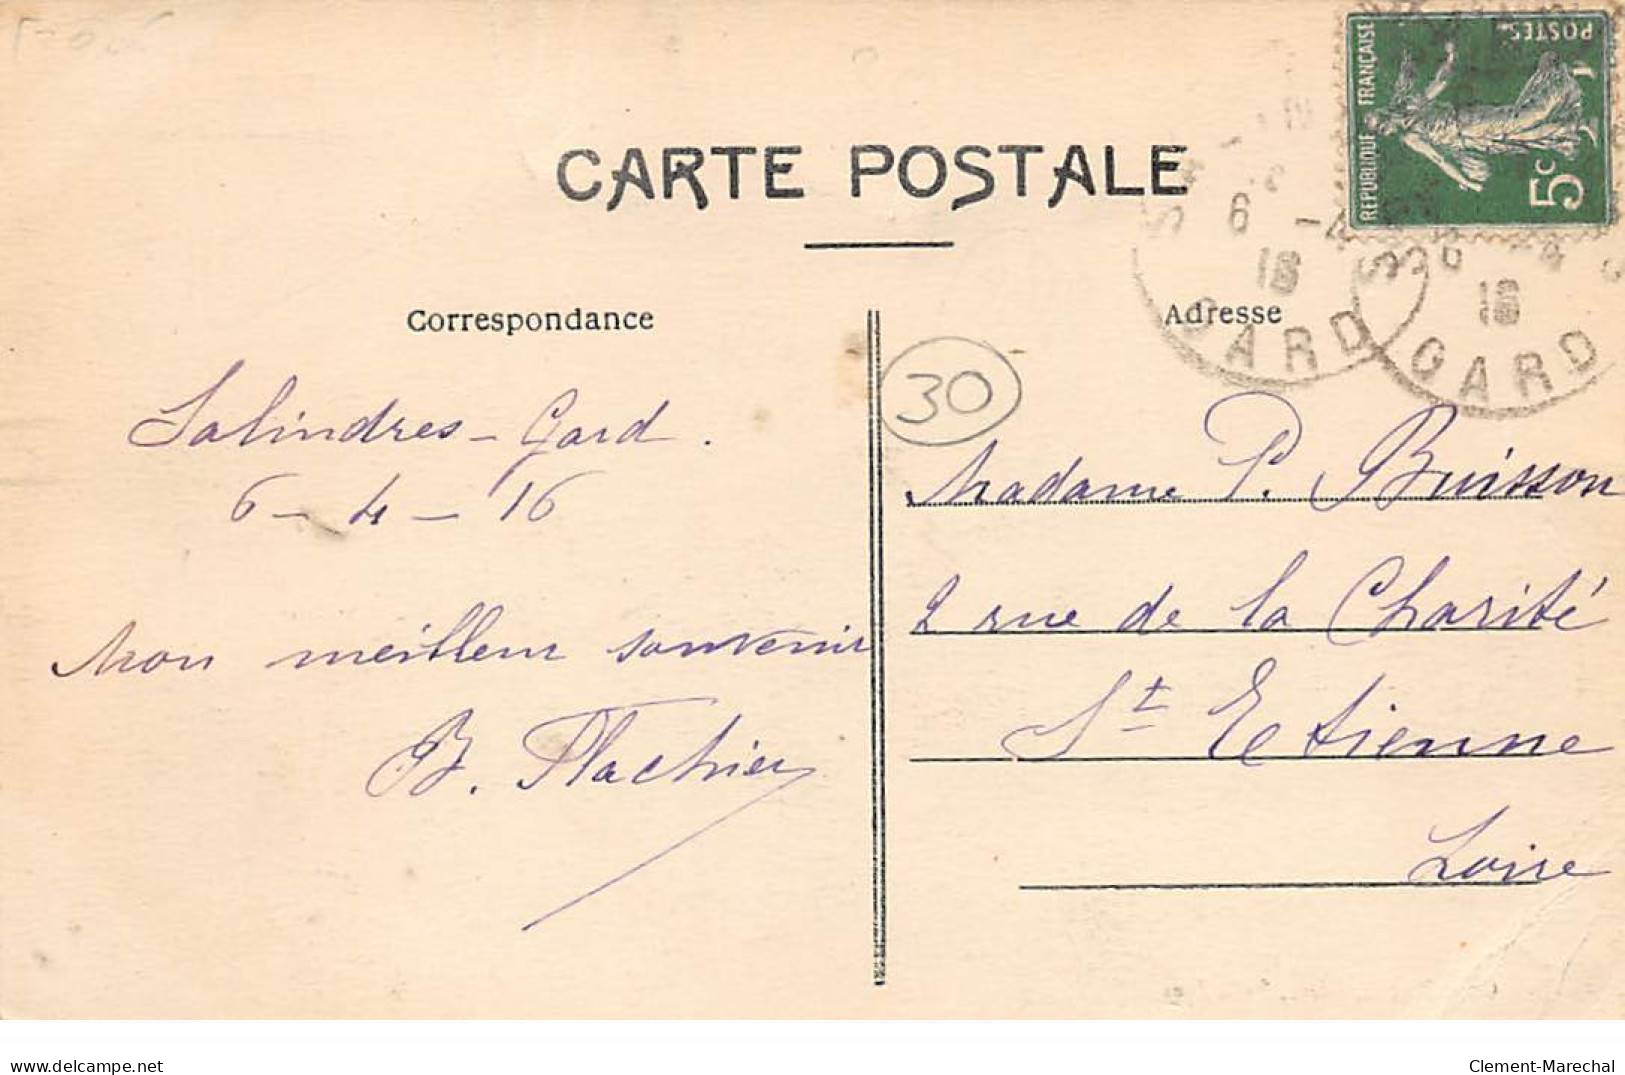 CARTE POSTALE
RÉPUBLIQUE FRANÇAISE
POSTES
5c
6 -4
16
GARD
6 -4
16
GARD
Correspondance
Adresse
30
Salindres - Gard.
6 - 4 - 16
Mon meilleur souvenir
B. Flachier
Madame P. Buisson
2 rue de la Charité
St Etienne
Loire
www.delcampe.net
Clement-Marechal